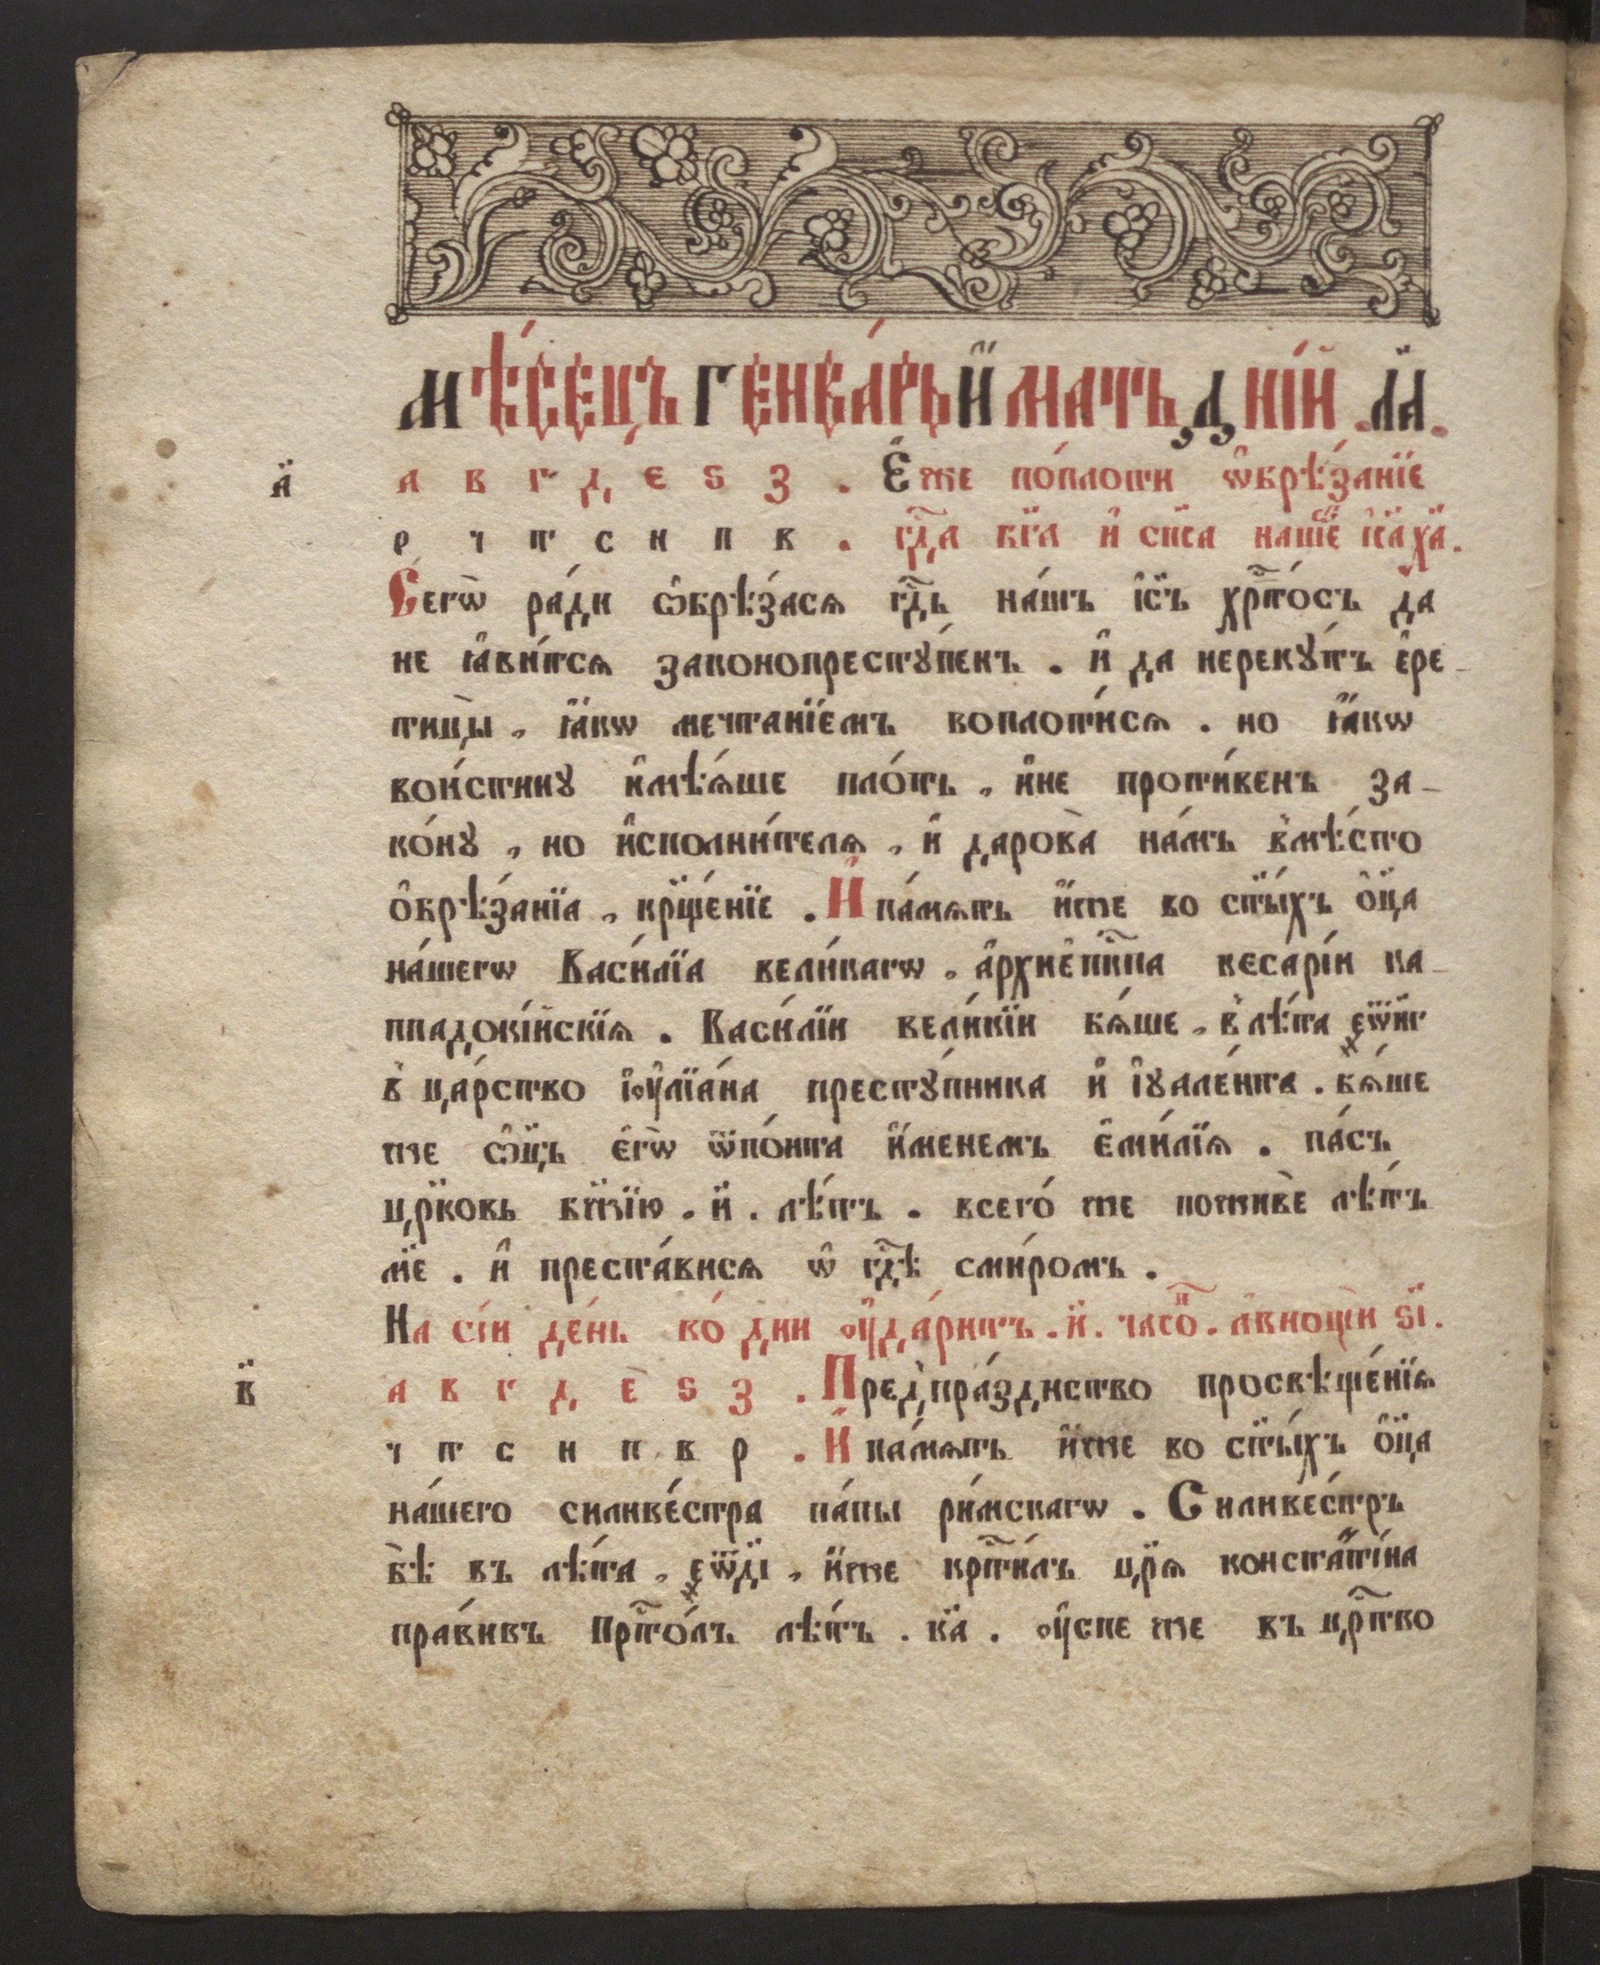 Мѣ́сѧцъ Генва́рьи̑ мать, дні́й . л҃а .
а҃ а в г д е ѕ з . Е҆же по́плоти ѡ҆брѣ́занїе
р ч т с н п в . гдⷭ҇а бг҃а и҆ сп҃са нашⷢ҇е іс҃а х҃а .
Сегѡ̀ ра́ди ѡ҆брѣ́засѧ гдⷭ҇ь на́шъ і҆с҃ъ хрⷭ҇то́съ да
не ꙗ҆ви́тсѧ законопресту́пенъ . и҆ да нереку́тъ е҆ре-
тицы̀ , ꙗ҆́кѡ мечта́нїемъ воплоти́сѧ . но ꙗ҆́кѡ
вои́стинꙋ и҆мѣ́ѧше пло́ть , и҆не проти́венъ за-
ко́нꙋ , но и҆сполни́телѧ , и҆ дарова̀ на́мъ в̾мѣ́сто
о҆брѣ́занїа , кр҃ще́нїе . И҆ па́мѧть и҆́же во ст҃ы́хъ о҆ц҃а
на́шегѡ Васи́лїа вели́кагѡ , а҆рхиепⷭ҇кпа кесарі́и ка-
ппадокі́йскїѧ . Васи́лїи вели́кїи бѧ́ше , в̾лѣ́та ҂еѿиг
в̾ ца́рство і҆ꙋлїа́на престꙋ́пника и҆ і҆ꙋале́нта . бѧ́ше
же ѡ҆ц҃ъ е҆гѡ̀ ѿпо́нта и҆́менемъ е҆ми́лїѧ . па́съ
цр҃ковь бж҃їю . и҃ . лѣ́тъ . всего́ же поживѐ лѣ́тъ
м҃е . и҆ преста́висѧ ѡ҆ гдⷭ҇ѣ сми́ромъ .
На сі́и де́нь ко́ дни ᲂу҆да́ритъ . и҃ . часоⷡ҇ . а҆внощѝ ѕ҃і .
в҃ а в г д е ѕ з . Пред̾пра́зднство просвѣще́нїѧ
ч т с н п в р . И҆ па́мѧть и҆́же во ст҃ы́хъ о҆ц҃а
на́шего силиве́стра па́пы ри́мскагѡ . Силиве́стръ
бѣ̀ въ лѣ́та , ҂еѿді , и҆́же крⷭ҇ти́лъ цр҃ѧ конста́тїна
пра́вивъ прⷭ҇то́лъ лѣ́тъ . к҃а . ᲂу҆спе же въ црⷭ҇тво